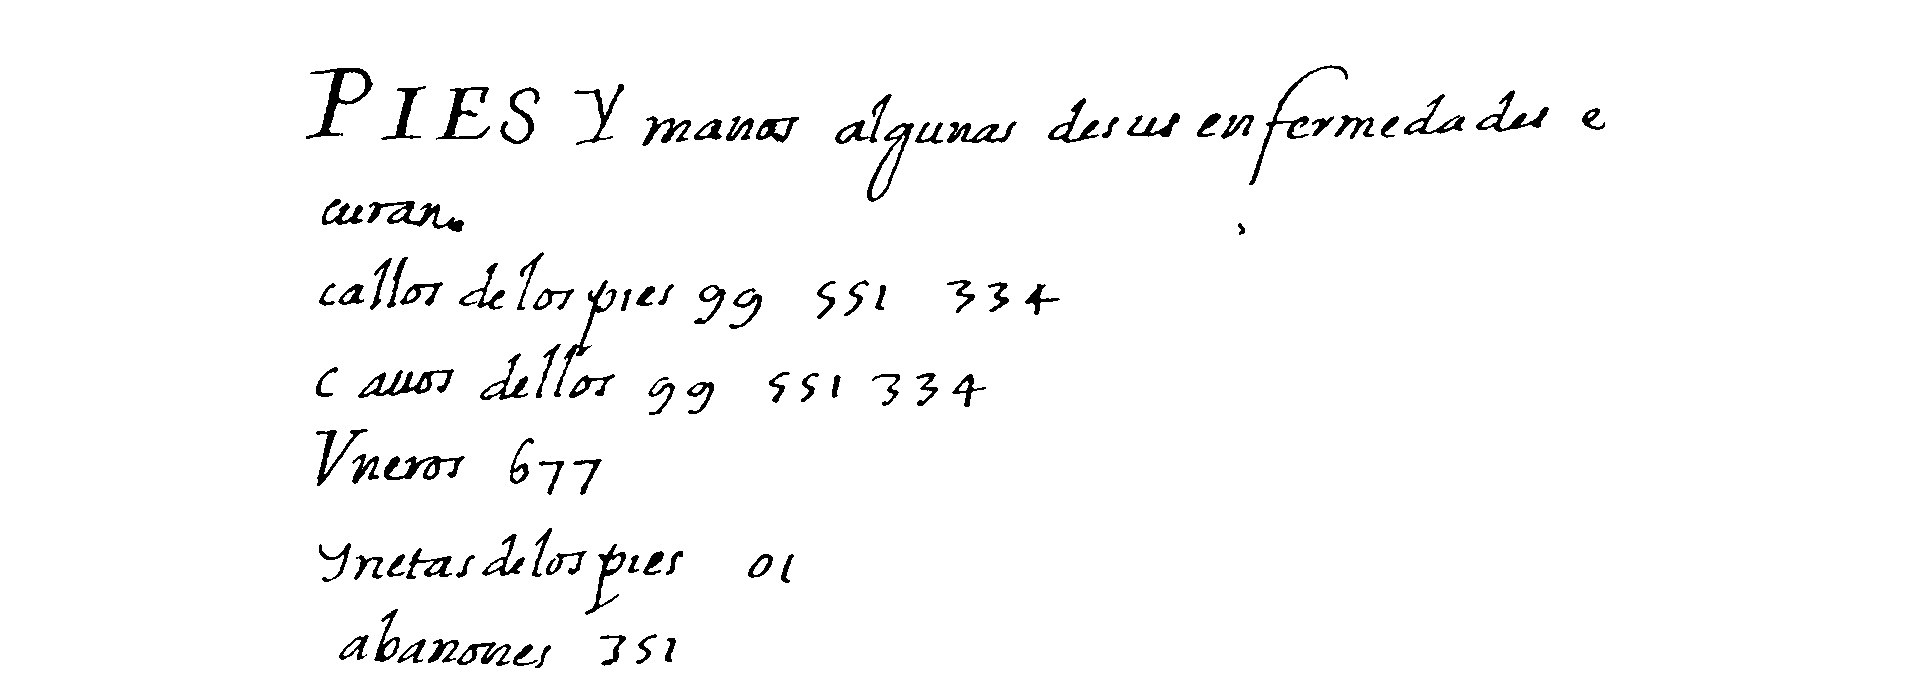 PIES Y manos algunas desus enfermedades e
curan.
callos delos pies 99 551 334
c auos dellos 99 551 334
Vneros 677
ynetas delos pies 01
abanones 351